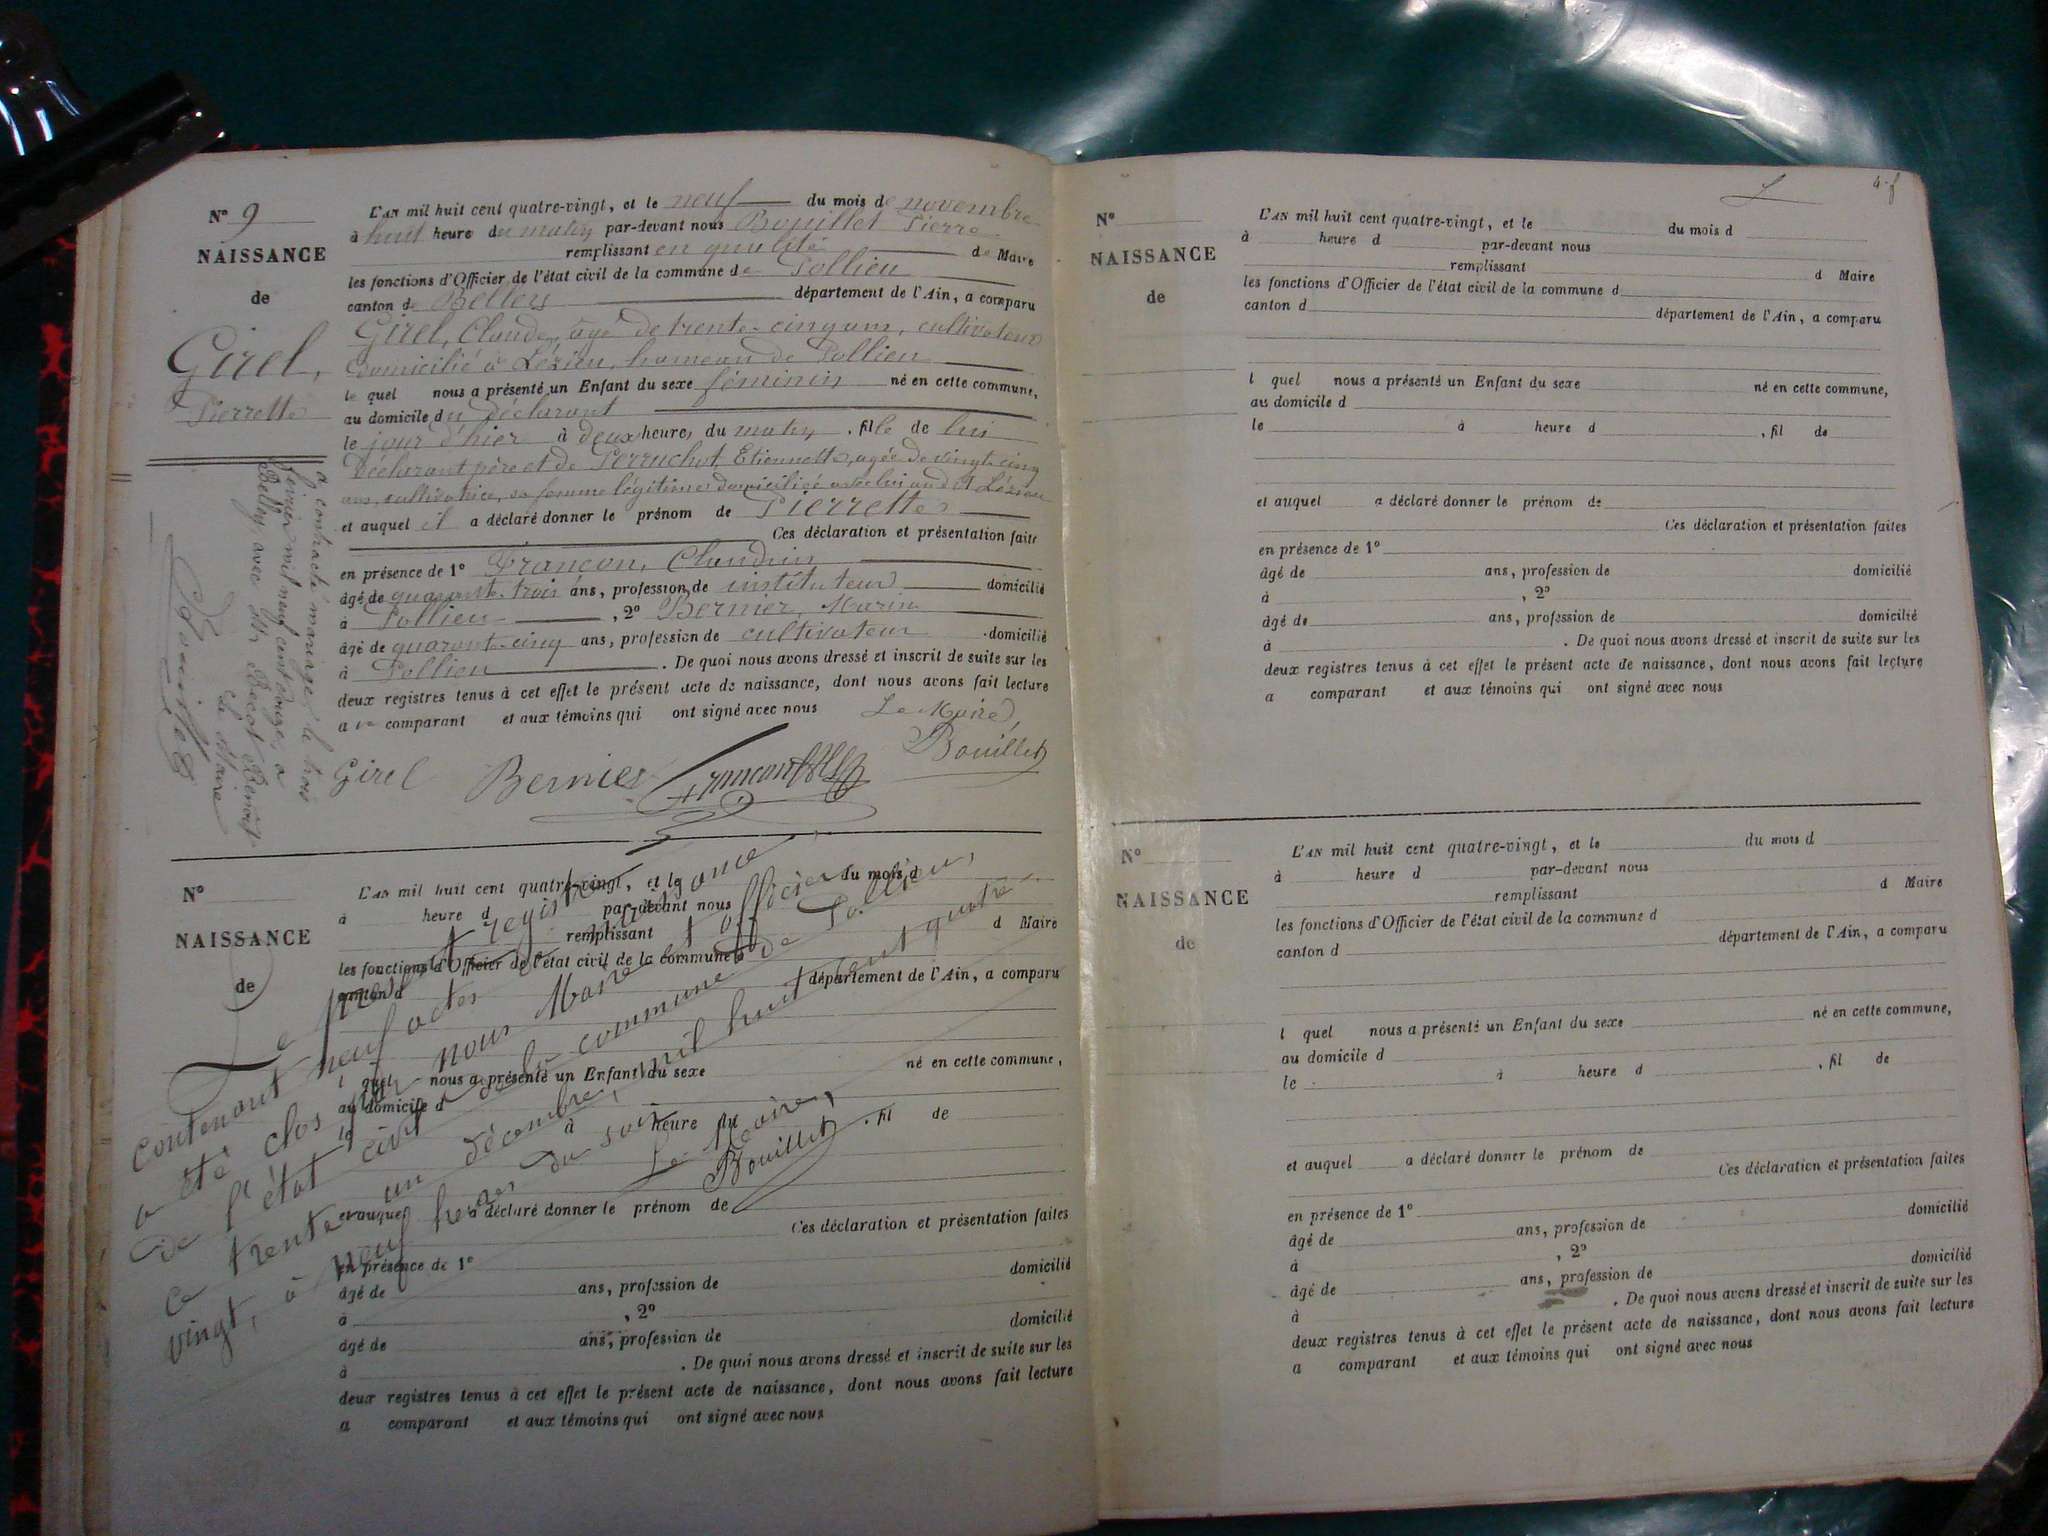 N° 9
NAISSANCE
de
Girel,
Pierrette
L'AN mil huit cent quatre-vingt, et le neuf du mois de novembre
à huit heure du matin par-devant nous Bouillet Pierre
remplissant en qualité de Maire
les fonctions d'Officier de l'état civil de la commune de Pollieu
canton de Belley département de l'Ain, a comparu
Girel, Claude, âgé de trente-cinq ans, cultivateur
domicilié à Lézieu, hameau de Pollieu
le quel nous a présenté un Enfant du sexe féminin né en cette commune,
au domicile du déclarant
le jour d'hier à deux heures du matin, fille de lui
déclarant père et de Perruchot, Etiennette, agée de vingt-cinq
ans, cultivatrice, sa femme légitime domiciliée avec lui audit Lézieu
et auquel il a déclaré donner le prénom de Pierrette
Ces déclaration et présentation faite
en présence de 1° Françon, Claudin
âgé de quarante-trois ans, profession de instituteur domicilié
à Pollieu, 2° Bernier, Marin
âgé de quarante-cinq ans, profession de cultivateur domicilié
à Pollieu. De quoi nous avons dressé et inscrit de suite sur les
deux registres tenus à cet effet le présent acte de naissance, dont nous avons fait lecture
au comparant et aux témoins qui ont signé avec nous
Le Maire,
Girel Bernier Françon Bouillet
a contracté mariage le trois
février mil neuf cent douze, à
Belley avec Benoit
Le Maire
N°
NAISSANCE
de
L'AN mil huit cent quatre-vingt, et le du mois d
à heure d par-devant nous
remplissant d Maire
les fonctions d'Officier de l'état civil de la commune d
canton d département de l'Ain, a comparu
l quel nous a présenté un Enfant du sexe né en cette commune,
au domicile d
le à heure du , fil de
et auquel a déclaré donner le prénom de
Ces déclaration et présentation faites
en présence de 1°
âgé de ans, profession de domicilié
à , 2°
âgé de ans, profession de domicilié
à . De quoi nous avons dressé et inscrit de suite sur les
deux registres tenus à cet effet le présent acte de naissance, dont nous avons fait lecture
a comparant et aux témoins qui ont signé avec nous
Le présent registre
contenant neuf actes de naissance
a été clos par nous Maire et officier
de l'état civil de la commune de Pollieu,
ce trente un décembre, mil huit cent quatre
vingt, à neuf heures du soir
Le Maire,
Bouillet
N°
NAISSANCE
de
L'AN mil huit cent quatre-vingt, et le du mois d
à heure d par-devant nous
remplissant d Maire
les fonctions d'Officier de l'état civil de la commune d
canton d département de l'Ain, a comparu
l quel nous a présenté un Enfant du sexe né en cette commune,
au domicile d
le à heure d , fil de
et auquel a déclaré donner le prénom de
Ces déclaration et présentation faites
en présence de 1°
âgé de ans, profession de domicilié
à , 2°
âgé de ans, profession de domicilié
à . De quoi nous avons dressé et inscrit de suite sur les
deux registres tenus à cet effet le présent acte de naissance, dont nous avons fait lecture
a comparant et aux témoins qui ont signé avec nous
N°
NAISSANCE
de
L'AN mil huit cent quatre-vingt, et le du mois d
à heure d par-devant nous
remplissant d Maire
les fonctions d'Officier de l'état civil de la commune d
canton d département de l'Ain, a comparu
l quel nous a présenté un Enfant du sexe né en cette commune,
au domicile d
le à heure d , fil de
et auquel a déclaré donner le prénom de
Ces déclaration et présentation faites
en présence de 1°
âgé de ans, profession de domicilié
à , 2°
âgé de ans, profession de domicilié
à . De quoi nous avons dressé et inscrit de suite sur les
deux registres tenus à cet effet le présent acte de naissance, dont nous avons fait lecture
a comparant et aux témoins qui ont signé avec nous